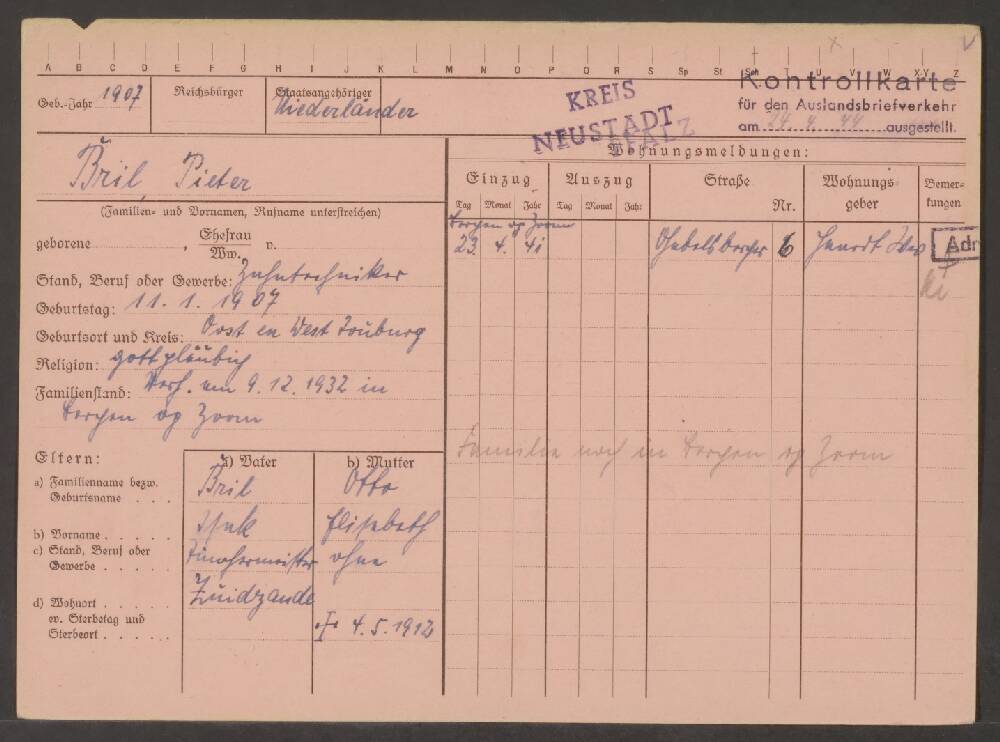 A B C D E F G H I J K L M N O P Q R S Sp St Sch T U V W X-Y Z
Geb.-Jahr 1907
Reichsbürger
Staatsangehöriger
Niederländer
KREIS
NEUSTADT
PFALZ
Kontrollkarte
für den Auslandsbriefverkehr
am 24. 4. 44 ausgestellt.
Bril, Pieter
(Familien- und Vornamen, Rufname unterstreichen)
geborene , Ehefrau v.
Ww.
Stand, Beruf oder Gewerbe: Zahntechniker
Geburtstag: 11. 1. 1907
Geburtsort und Kreis: Oost en West
Religion: gottgläubig
Familienstand: Verh. am 9. 12. 1932 in
Bergen op Zoom
Wohnungsmeldungen:
Einzug Auszug Straße Nr. Wohnungsgeber Bemerkungen
Tag Monat Jahr Tag Monat Jahr
Bergen op Zoom
23. 4. 41 6
Adr
Familie noch in Bergen op Zoom
Eltern: a) Vater b) Mutter
a) Familienname bezw. Geburtsname . . . Bril Otto
b) Vorname . . . . . Elisabeth
c) Stand, Beruf oder Gewerbe . . . . ohne
d) Wohnort . . . . . Zuidzande
ev. Sterbetag und
Sterbeort . . . . . 4. 5. 1912